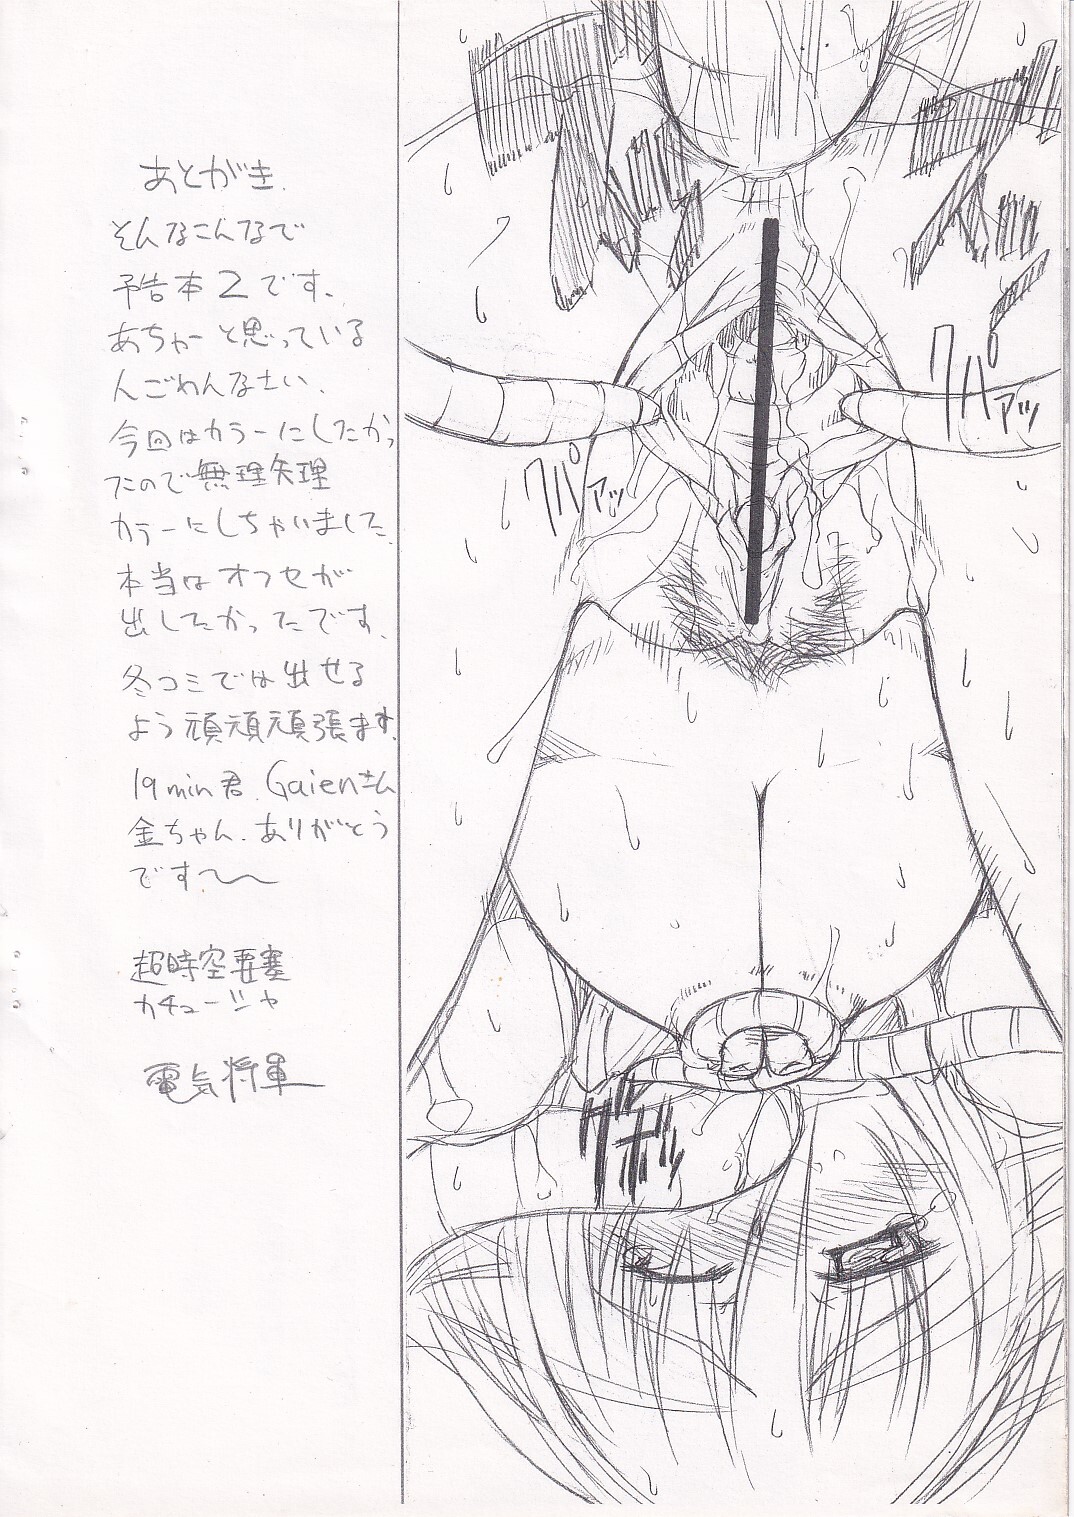 あとがき.
そんなこんなで
予告本2です、
あちゃーと思っている
んごわんなさい、
今回はカラーにしたかっ
たので無理矢理
カラーにしちゃいました.
本当はオフセが
出したかったです、
冬コミでは出せる
よう頑頑頑張ます.
19min君.Gaienさん
金ちゃん.ありがとう
です〜〜
超時空要塞
カチューシャ
電気将軍